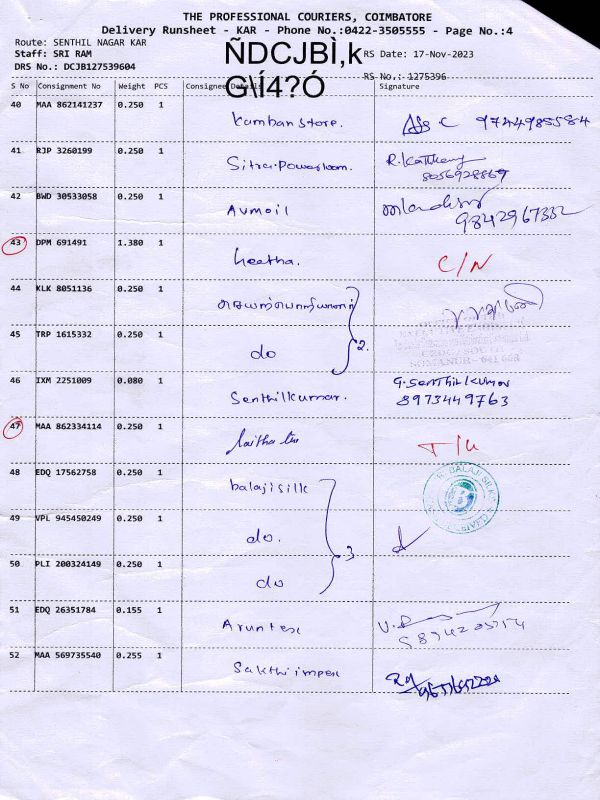 THE PROFESSIONAL COURIERS, COIMBATORE
Delivery Runsheet - KAR - Phone No.:0422-3505555 - Page No.:4
Route: SENTHIL NAGAR KAR
Staff: SRI RAM
DRS No.: DCJB127539604
ÑDCJBÌ,k
G\Í4?Ó
RS Date: 17-Nov-2023
RS No.: 1275396
S No Consignment No Weight PCS Consignee Details Signature
40 MAA 862141237 0.250 1 Kumban store. 9744985584
41 RJP 3260199 0.250 1 8056928869
42 BWD 30533058 0.250 1 Avmoil 9842967332
43 DPM 691491 1.380 1 heetha. C/N
44 KLK 8051136 0.250 1
45 TRP 1615332 0.250 1 do 2.
46 IXM 2251009 0.080 1 Senthilkumar. G. Senthilkumar
8973449763
47 MAA 862334114 0.250 1
48 EDQ 17562758 0.250 1 balaji silk
49 VPL 945450249 0.250 1 do.
3
50 PLI 200324149 0.250 1 do
51 EDQ 26351784 0.155 1 Aruntex
52 MAA 569735540 0.255 1 Sakthi impex